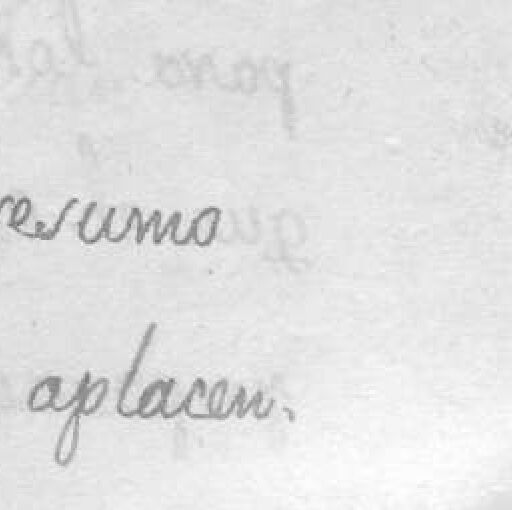 resumo
aplacen.